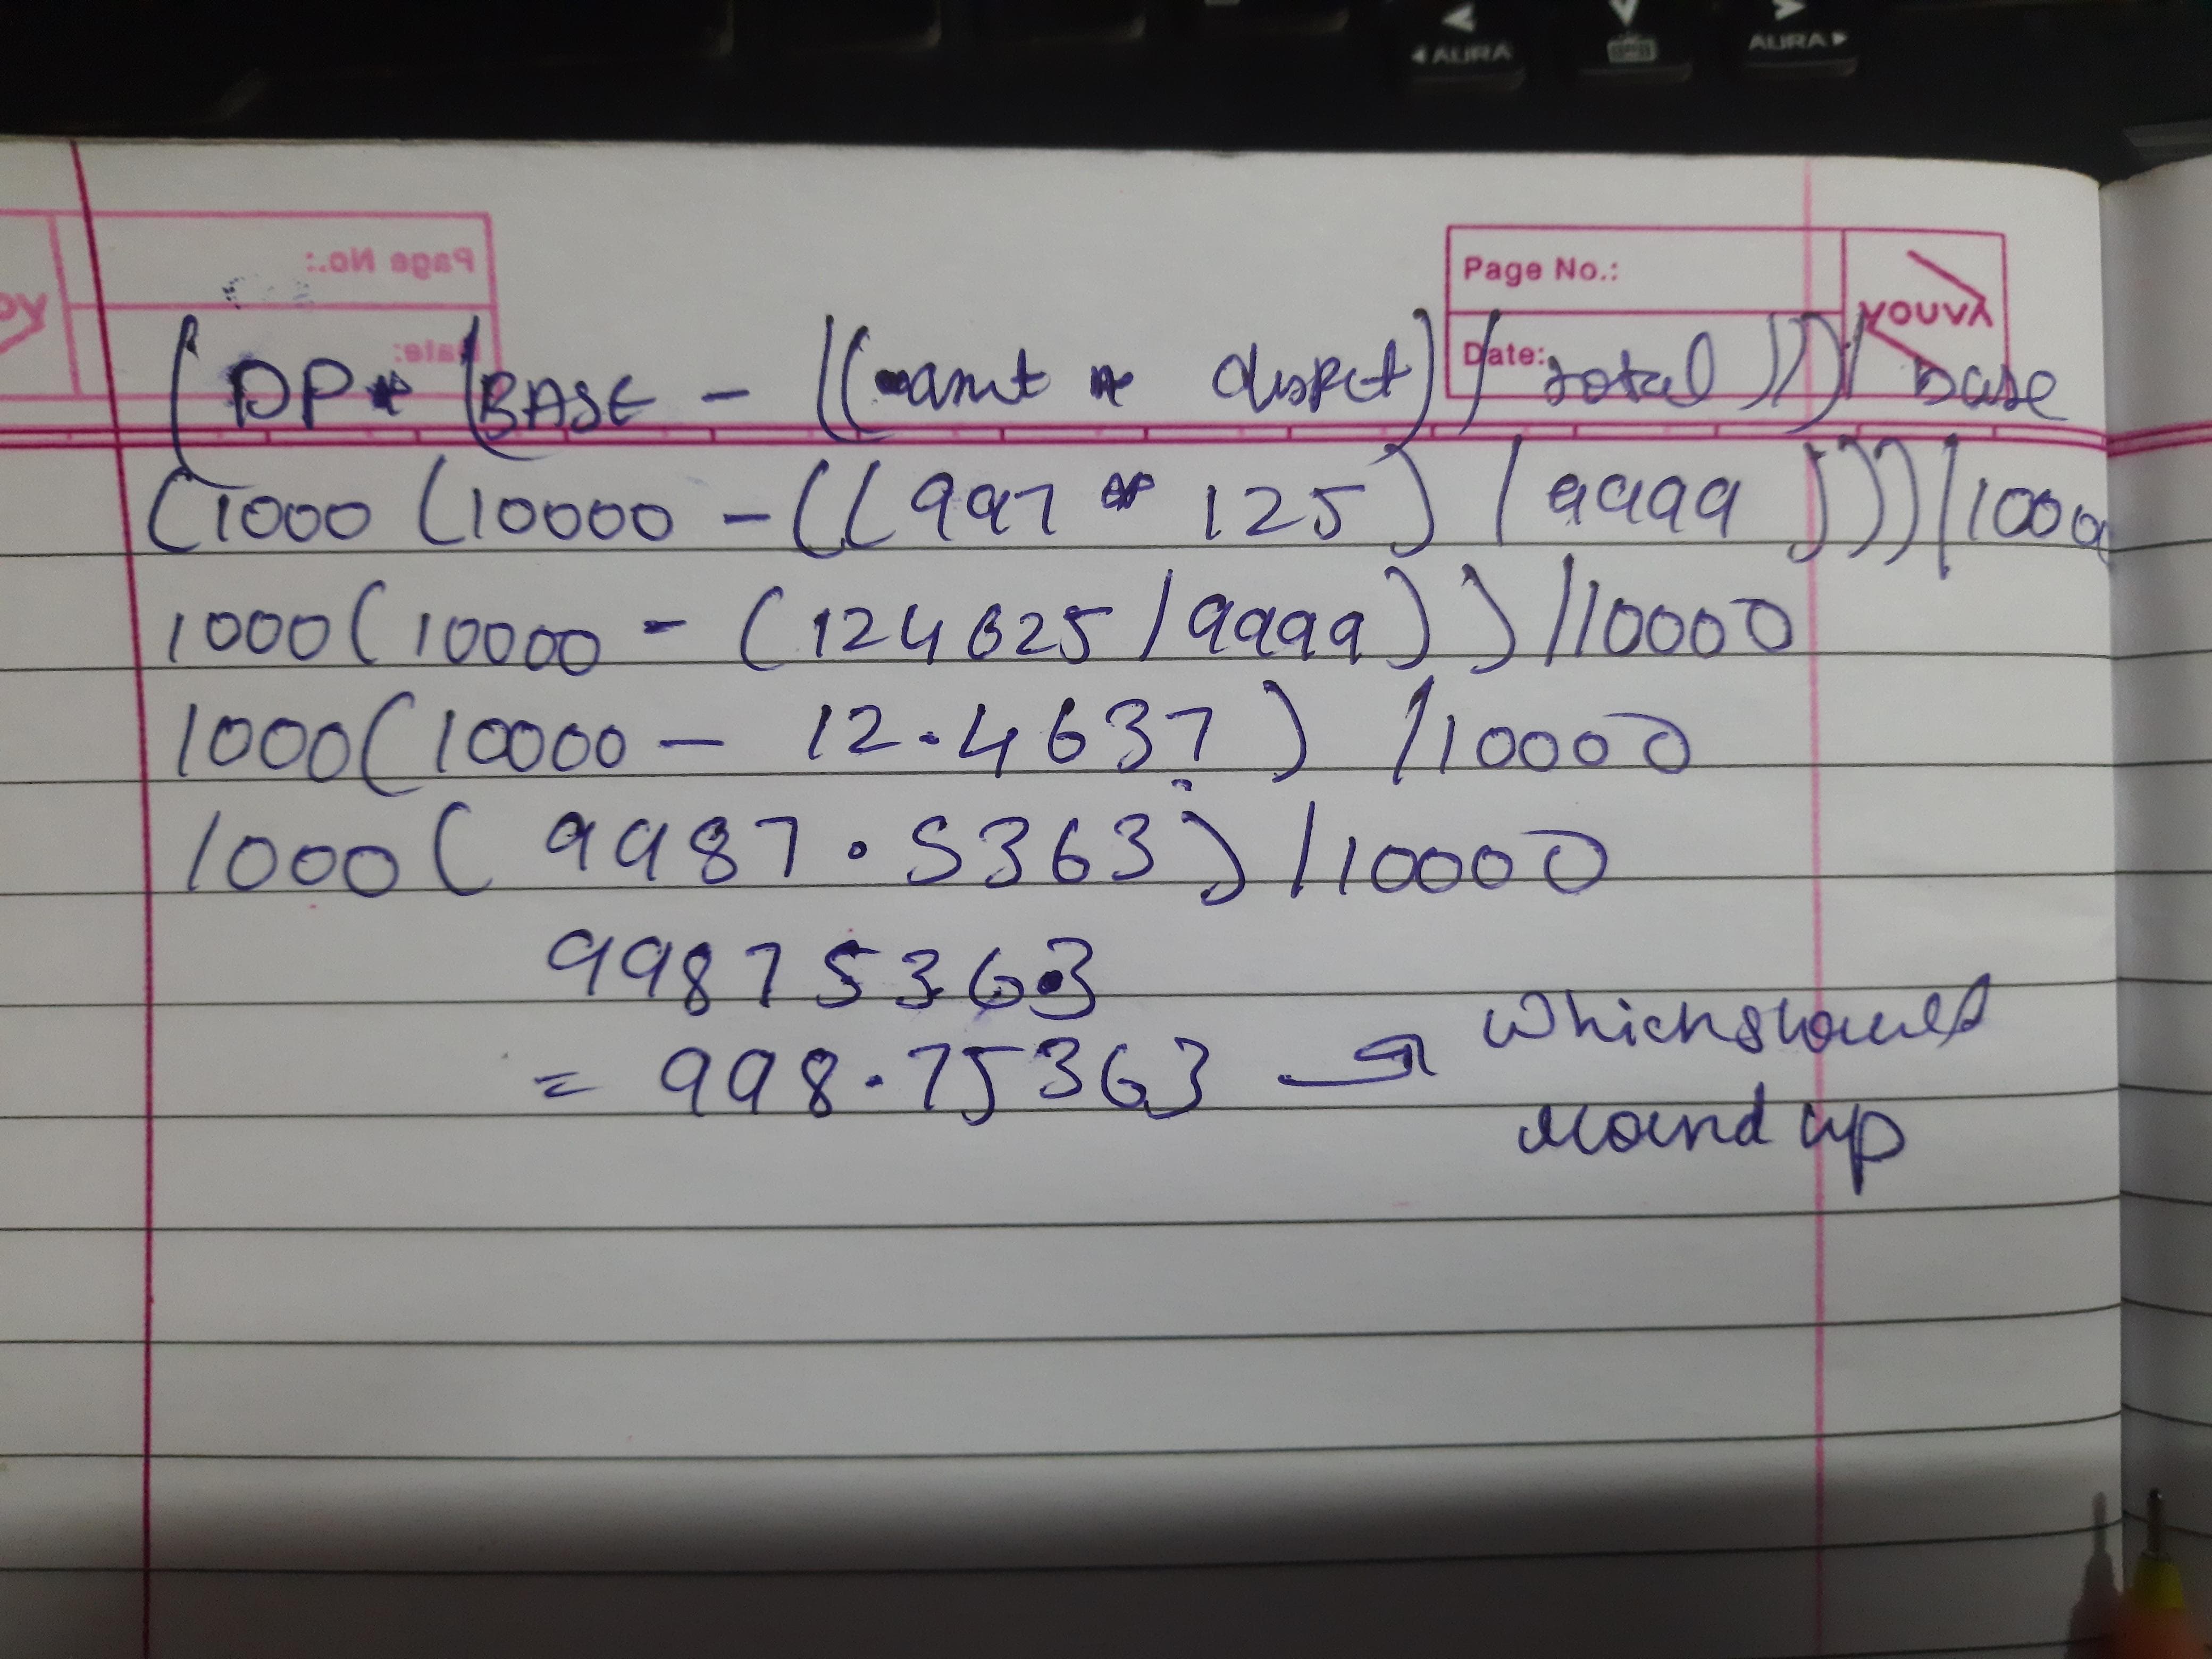 AURA
AURA
Page No.:
Page No.:
Date:
Date:
YOUVA
(DP* (BASE - ((amt * dispct) / total))) / base
(1000 (10000 - ((997 * 125) / 9999))) / 1000
1000 (10000 - (124625 / 9999)) / 10000
1000 (10000 - 12.4637) / 10000
1000 ( 9987.5363) / 10000
9987536.3
= 998.75363 → which should
round up